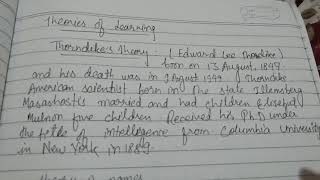 Theories of Learning
Thorndike's Theory: (Edward Lee Thorndike)
born on 13 August, 1847
and his death was in 9 August 1949. Thorndike
American scientist born in the state
married and had children
five children Received his Ph.D under
the title of intelligence from Columbia University
in New York in 1889.